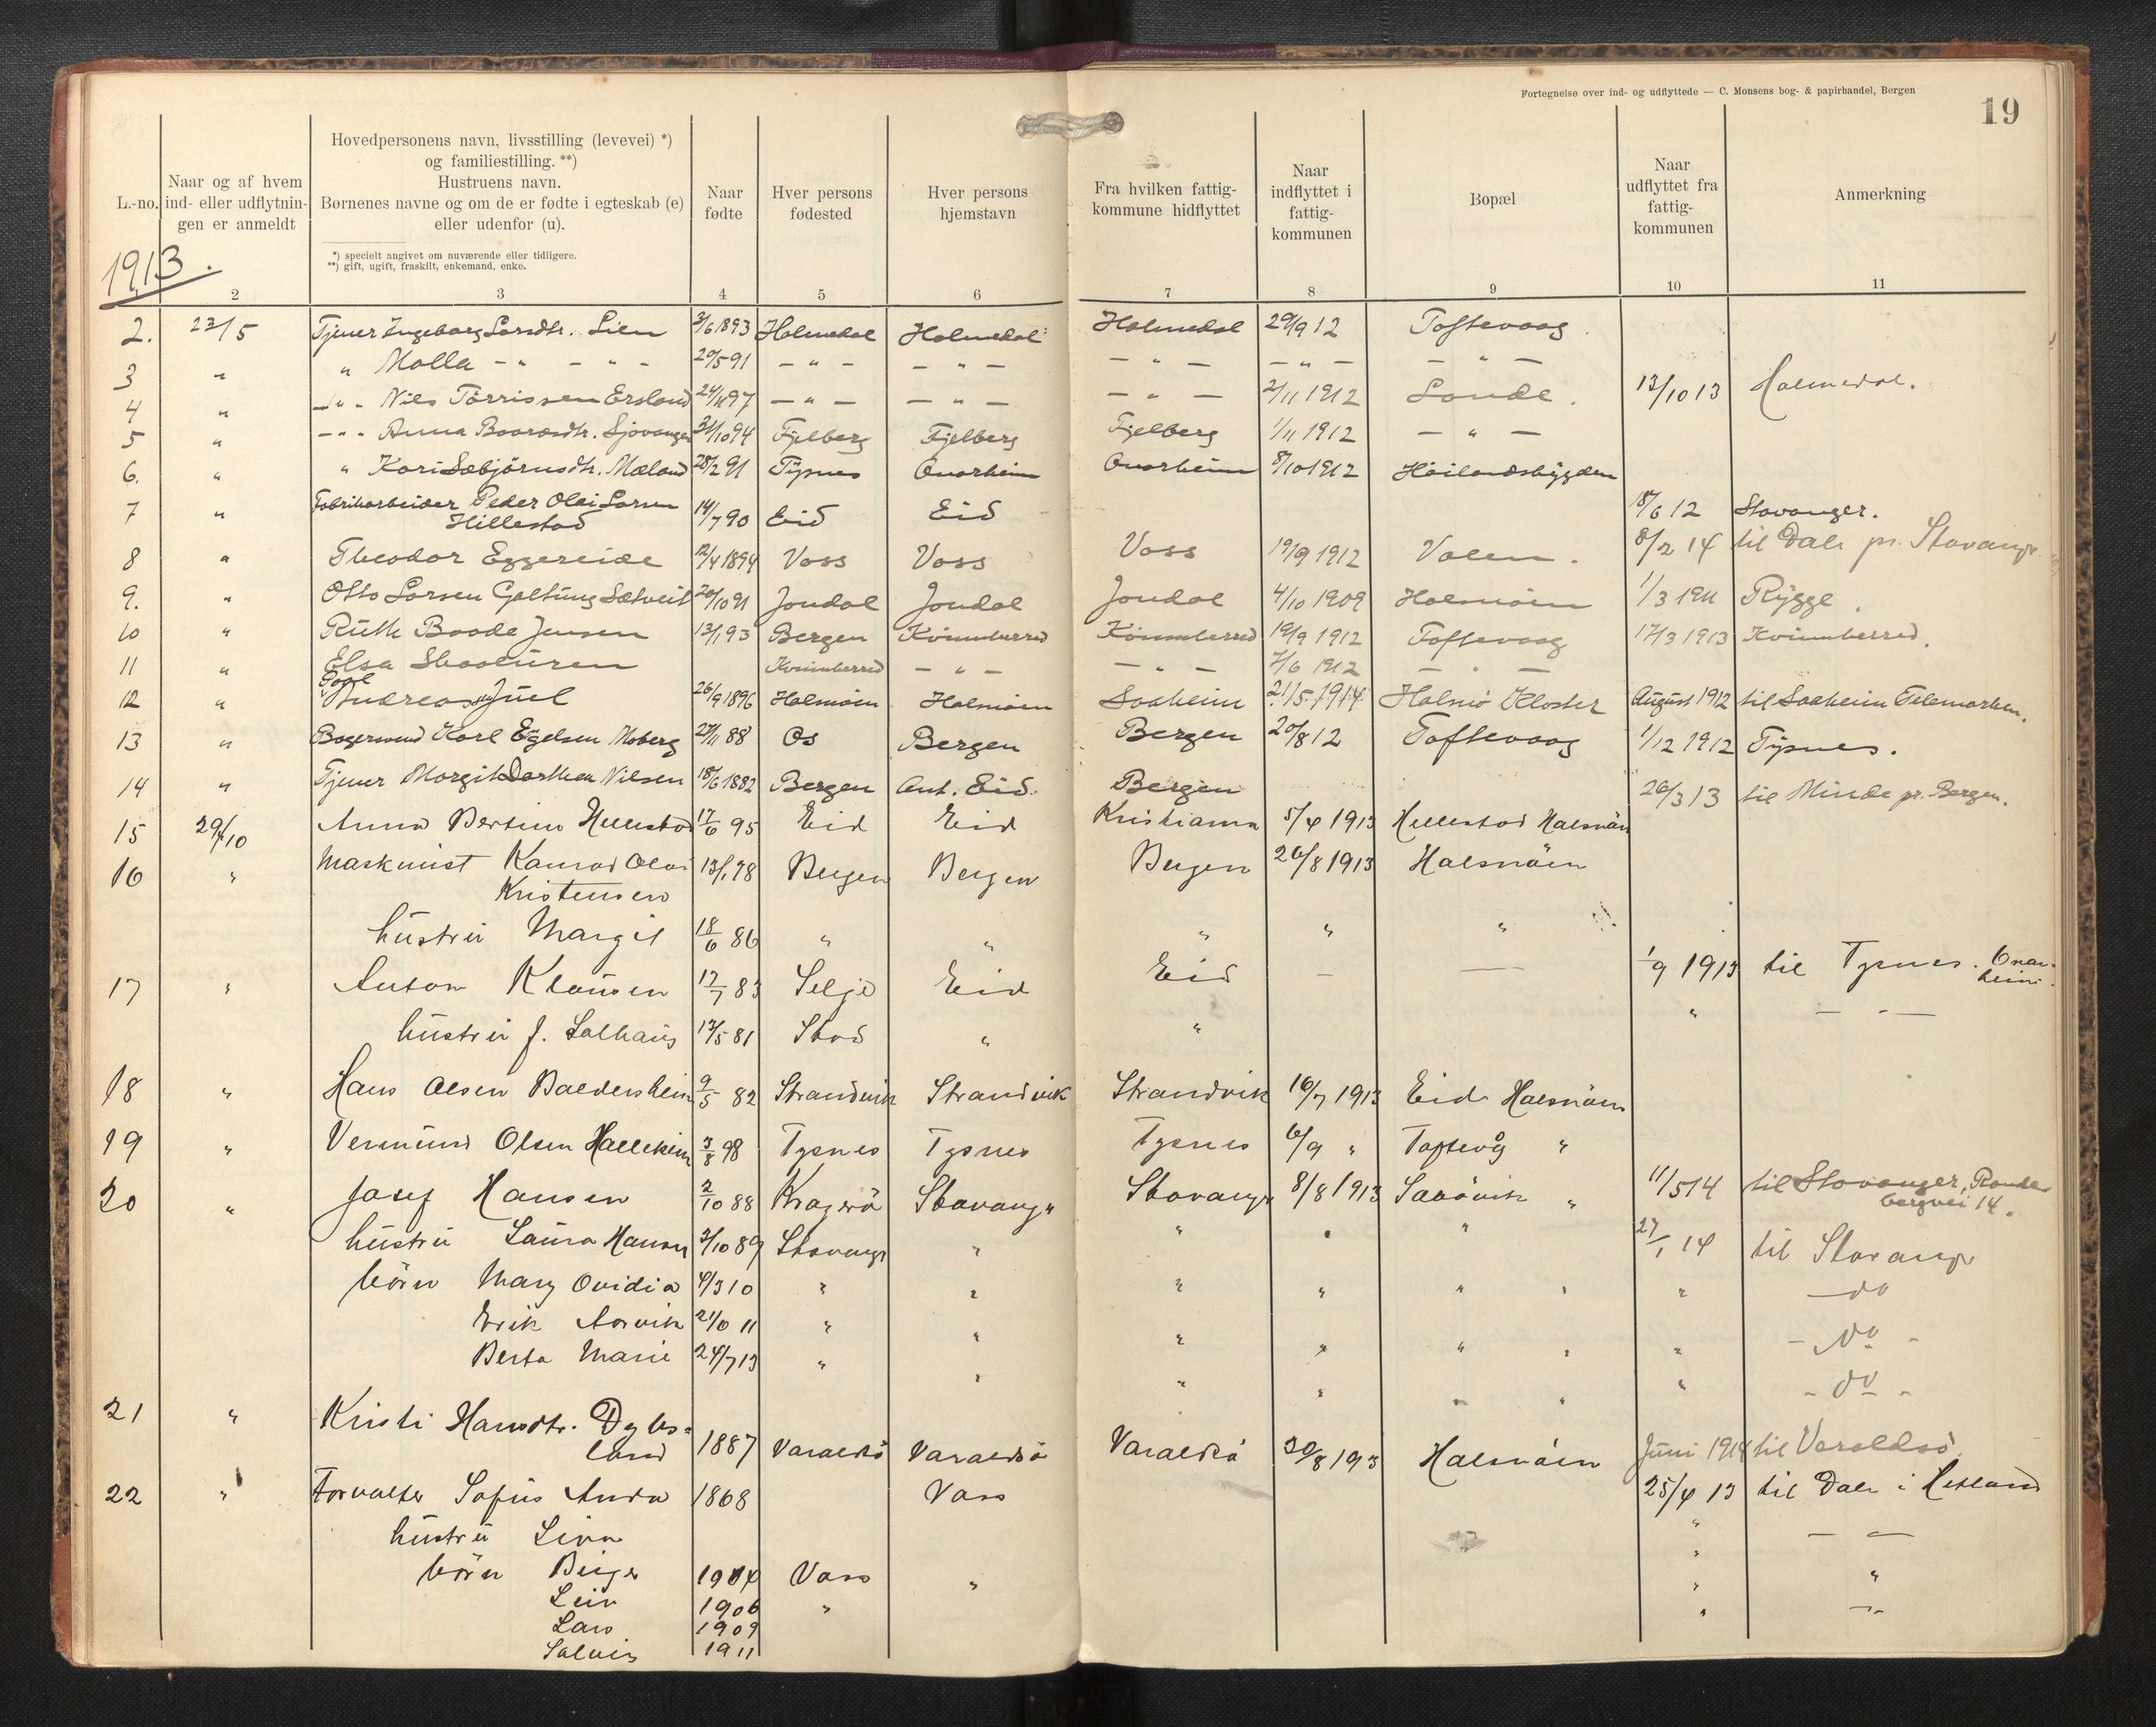 Fortegnelse over ind- og udflyttede — C. Monsens bog- & papirhandel, Bergen
19
1913.
L.-no. | Naar og af hvem ind- eller udflytningen er anmeldt | Hovedpersonens navn, livsstilling (levevei) *) og familiestilling. **) Hustruens navn. Børnenes navne og om de er fødte i egteskab (e) eller udenfor (u). | Naar fødte | Hver persons fødested | Hver persons hjemstavn | Fra hvilken fattigkommune hidflyttet | Naar indflyttet i fattigkommunen | Bopæl | Naar udflyttet fra fattigkommunen | Anmerkning
*) specielt angivet om nuværende eller tidligere.
**) gift, ugift, fraskilt, enkemand, enke.
2 3 4 5 6 7 8 9 10 11
2. 23/5 Tjener Ingeborg Larsdtr. Lien 3/6 1893 Holmedal Holmedal Holmedal 29/9 12 Toftevaag
3 " " Malla - " - - " - 20/5 91 - " - - " - - " - - " - - " -
4 " - " - Nils Tørrissen Ersland 24/11 97 - " - - " - - " - 2/11 1912 Sande. 13/10 13 Holmedal.
5 " - " - Anna Baardsdtr. 31/10 94 Fjelberg Fjelberg Fjelberg 1/11 1912 - " -
6. " " Kari Sæbjørnsdtr. Mæland 28/2 91 Tysnes Onarheim Onarheim 8/10 1912 Høilandsbygden
7 " Fabrikarbeider Peder Olai Larsen
Hillestad 14/7 90 Eid Eid 18/6 12 Stavanger.
8 " Theodor Eggereide 12/4 1894 Voss Voss Voss 19/9 1912 Valen. 8/2 14 til Dale pr. Stavanger
9. " Otto Larsen Galtung Sætveit 20/10 91 Jondal Jondal Jondal 4/10 1909 Halsnøen 1/3 1911 Rygge.
10 " Ruth Baade Jensen 13/1 93 Bergen Kvinnherred Kvinnherred 19/9 1912 Toftevaag 17/3 1913 Kvinnherred.
11 " Elsa Skaaluren Kvinnherred - " - - " - 7/6 1912 - " -
Poul
12 " Andreas Juel 26/9 1896 Halsnøen Halsnøen Saaheim 21/5 1914 Halsnø Kloster August 1912 til Saaheim Telemarken.
13 " Bagersvend Karl Egelsen Moberg 27/11 88 Os Bergen Bergen 20/8 12 Toftevaag 1/12 1912 Tysnes.
14 " Tjener Margit Dorthea Nilsen 18/6 1882 Bergen Ant. Eid. Bergen 26/3 13 til Minde pr. Bergen.
15 29/10 Anna Bertine Hillestad 17/6 95 Eid Eid Kristiania 5/4 1913 Hillestad Halsnøen
16 " Maskinist Konrad Olai 13/1 78 Bergen Bergen Bergen 26/8 1913 Halsnøen
Kristensen
hustru Margit 18/6 86 " " " " "
17 " Anton Klausen 17/7 83 Selje Eid Eid — — 1/9 1913 til Tysnes. Onarheim.
hustru f. Salhaug 17/5 81 " " " — " —
18 " Hans Olsen Baldersheim 9/5 82 Strandvik Strandvik Strandvik 16/7 1913 Eid Halsnøen
19 " Vermund Olsen 3/8 98 Tysnes Tysnes Tysnes 6/9 " Toftevåg "
20 " Josef Hansen 2/10 88 Kragerø Stavanger Stavanger 8/8 1913 " 11/5 14 til Stavanger,
bergvei 14.
hustru Laura Hansen 3/10 89 Stavanger " " " " 27/1 14 til Stavanger
børn Mary Ovidia 4/3 10 " " " " " " " — do
Erik Norvik 21/6 11 " " " " " " " - do -
Berta Marie 24/7 13 " " " " " " " - do -
21 " Kristi Hansdtr. Dybsland
1887 Varaldsø Varaldsø Varaldsø 30/8 193 Halsnøen Juni 1914 til Varaldsø
22 " Forvalter Sofus Anda 1868 Voss 25/4 13 til Dale i Hetland
hustru Lina " — " —
børn Birger 1904 Voss " " "
Leiv 1906 " " "
Lars 1909 " — " —
Solveig 1911